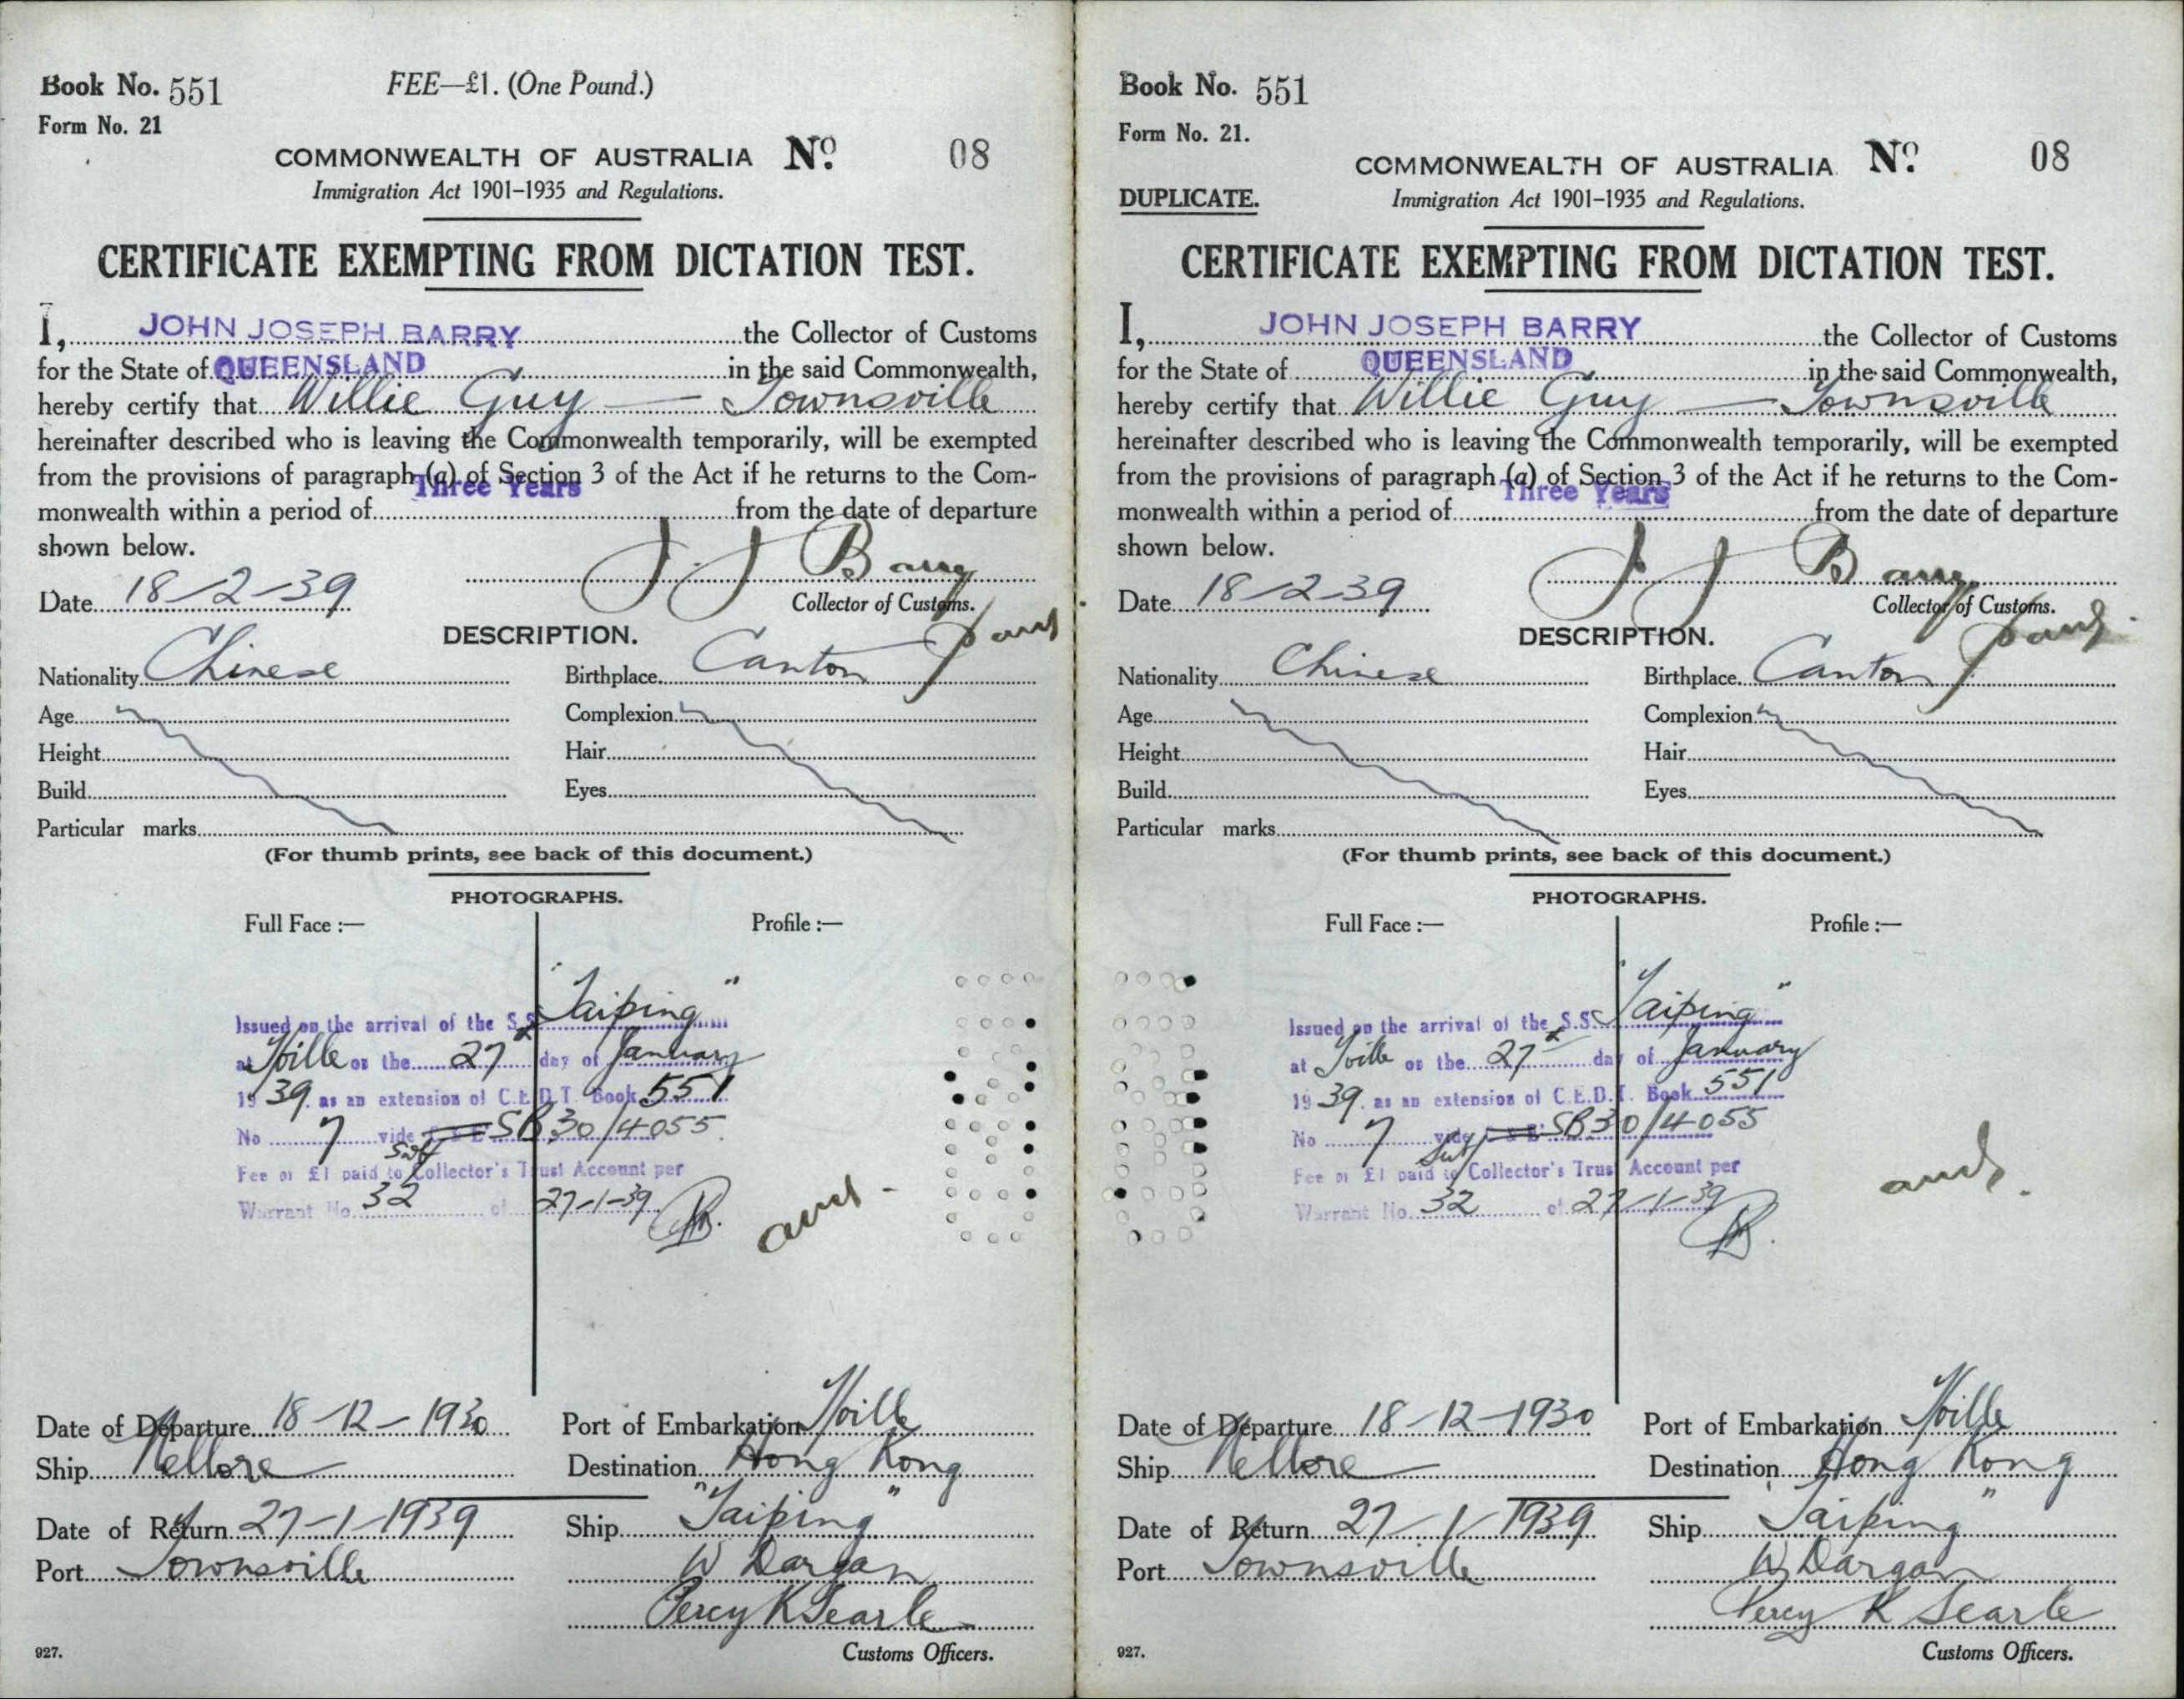 Book No. 551
FEE—£1. (One Pound.)
Form No. 21
COMMONWEALTH OF AUSTRALIA No. 08
Immigration Act 1901–1935 and Regulations.
CERTIFICATE EXEMPTING FROM DICTATION TEST.
I, JOHN JOSEPH BARRY the Collector of Customs
for the State of QUEENSLAND in the said Commonwealth,
hereby certify that Willie Guy — Townsville
hereinafter described who is leaving the Commonwealth temporarily, will be exempted
from the provisions of paragraph (a) of Section 3 of the Act if he returns to the Com-
monwealth within a period of Three Years from the date of departure
shown below.
J J Barry
Date 18-2-39
Collector of Customs.
DESCRIPTION.
Nationality Chinese Birthplace Canton
Age Complexion
Height Hair
Build Eyes
Particular marks
(For thumb prints, see back of this document.)
PHOTOGRAPHS.
Full Face :— Profile :—
Issued on the arrival of the S.S. "Taiping"
at T'ville on the 27th day of January
1939. as an extension of C.E.D.T. Book 551
No 7 vide SB30/4055
Fee of £1 paid to Collector's Trust Account per
Warrant No. 32 of 27-1-39
Date of Departure 18-12-1930 Port of Embarkation T'ville
Ship Nellore Destination Hong Kong
Date of Return 27-1-1939 Ship "Taiping"
Port Townsville W Dargan
Percy K Searle
927. Customs Officers.
Book No. 551
Form No. 21.
COMMONWEALTH OF AUSTRALIA No. 08
DUPLICATE.
Immigration Act 1901–1935 and Regulations.
CERTIFICATE EXEMPTING FROM DICTATION TEST.
I, JOHN JOSEPH BARRY the Collector of Customs
for the State of QUEENSLAND in the said Commonwealth,
hereby certify that Willie Guy — Townsville
hereinafter described who is leaving the Commonwealth temporarily, will be exempted
from the provisions of paragraph (a) of Section 3 of the Act if he returns to the Com-
monwealth within a period of Three Years from the date of departure
shown below.
J J Barry
Date 18-2-39
Collector of Customs.
DESCRIPTION.
Nationality Chinese Birthplace Canton
Age Complexion
Height Hair
Build Eyes
Particular marks
(For thumb prints, see back of this document.)
PHOTOGRAPHS.
Full Face :— Profile :—
Issued on the arrival of the S.S. "Taiping"
at T'ville on the 27th day of January
1939. as an extension of C.E.D.T. Book 551
No 7 vide SB30/4055
Fee of £1 paid to Collector's Trust Account per
Warrant No. 32 of 27-1-39
Date of Departure 18-12-1930 Port of Embarkation T'ville
Ship Nellore Destination Hong Kong
Date of Return 27-1-1939 Ship "Taiping"
Port Townsville W Dargan
Percy K Searle
927. Customs Officers.